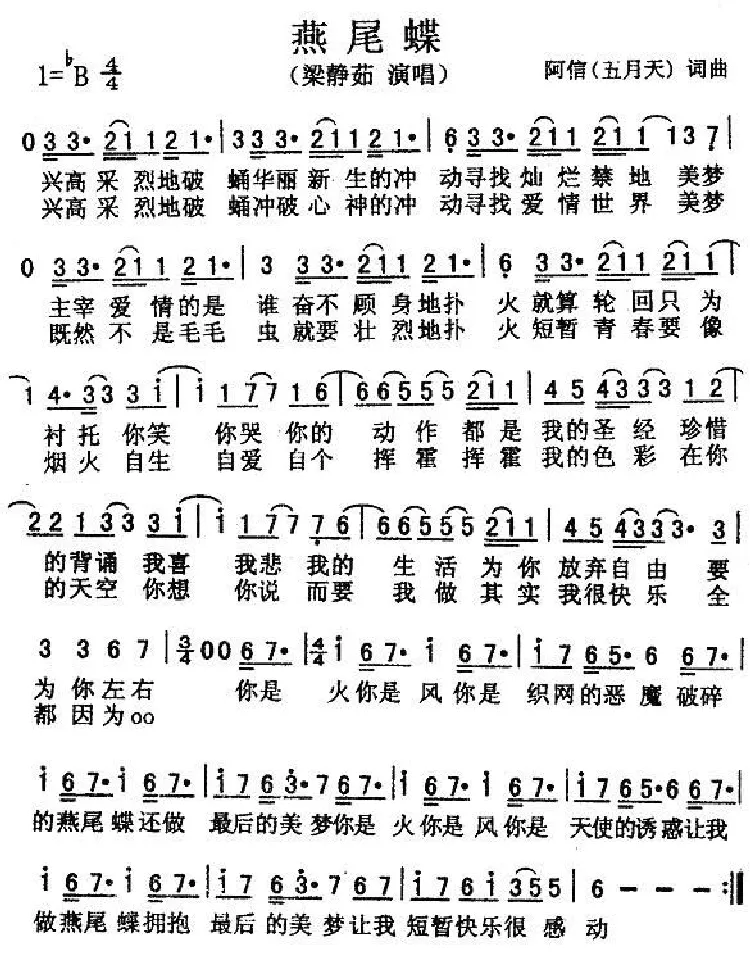 燕尾蝶
1=♭B 4/4 （梁静茹 演唱） 阿信（五月天）词曲
0 3 3· 2 1 1 2 1· | 3 3 3· 2 1 1 2 1· | 6 3 3· 2 1 1 2 1 1 1 3 7 |
兴高采烈地破 蛹华丽新生的冲 动寻找灿烂禁地 美梦
兴高采烈地破 蛹冲破心神的冲 动寻找爱情世界 美梦
0 3 3· 2 1 1 2 1· | 3 3 3· 2 1 1 2 1· | 6 3 3· 2 1 1 2 1 1 |
主宰爱情的是 谁奋不顾身地扑 火就算轮回只为
既然不是毛毛 虫就要壮烈地扑 火短暂青春要像
1 4· 3 3 3 i | i 1 7 7 1 6 | 6 6 5 5 5 2 1 1 | 4 5 4 3 3 3 1 2 |
衬托你笑 你哭你的 动作都是我的圣经珍惜
烟火自生 自爱自个 挥霍挥霍我的色彩在你
2 2 1 3 3 3 i | i 1 7 7 7 6 | 6 6 5 5 5 2 1 1 | 4 5 4 3 3 3· 3 |
的背诵我喜 我悲我的 生活为你放弃自由要
的天空你想 你说而要 我做其实我很快乐全
3 3 6 7 | 3/4 0 0 6 7· | 4/4 i 6 7· i 6 7· | i 7 6 5· 6 6 7· |
为你左右 你是 火你是风你是 织网的恶魔破碎
都因为oo
i 6 7· i 6 7· | i 7 6 3· 7 6 7· | i 6 7· i 6 7· | i 7 6 5· 6 6 7· |
的燕尾蝶还做 最后的美梦你是 火你是风你是 天使的诱惑让我
i 6 7· i 6 7· | i 7 6 3· 7 6 7· | i 7 6 i 3 5 5 | 6 – – – :‖
做燕尾蝶拥抱 最后的美梦让我 短暂快乐很感动